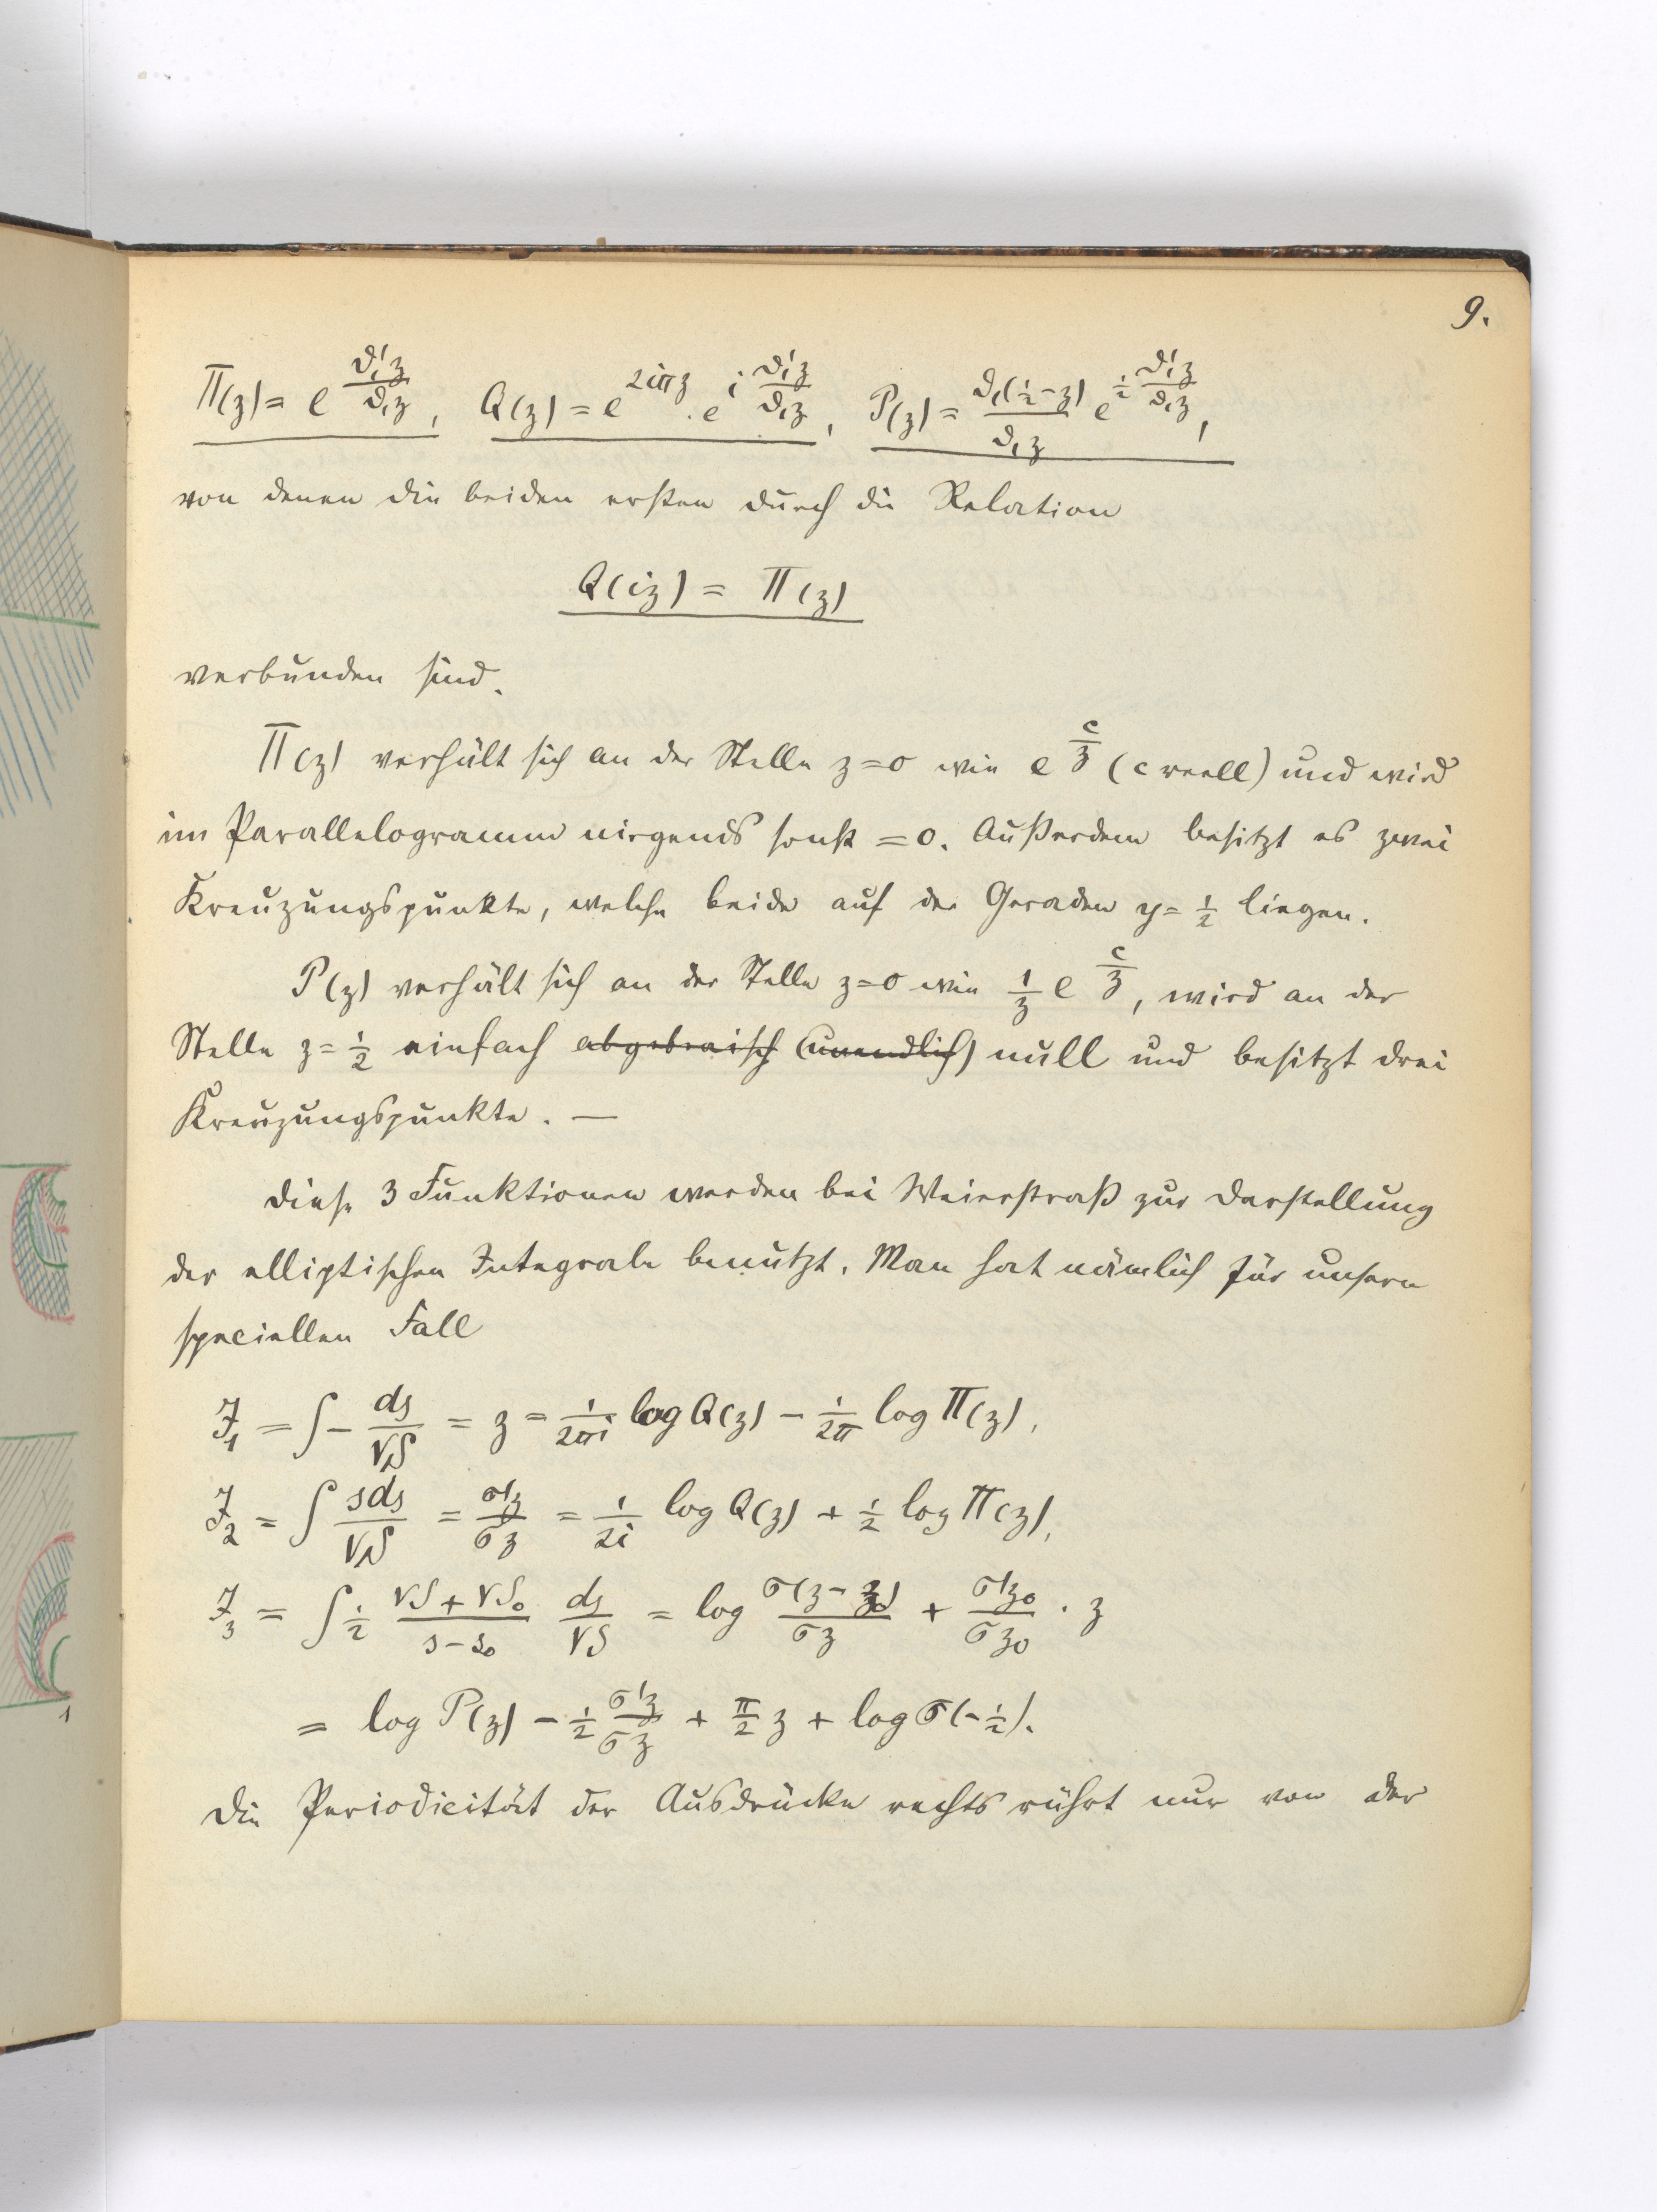 9.
Π(z) = e^{ϑ₁'z/ϑ₁z}, Q(z) = e^{2iπz} · e^{i ϑ₁'z/ϑ₁z}, P(z) = ϑ₁(½−z)/ϑ₁z e^{½ ϑ₁'z/ϑ₁z},
von denen die beiden ersten durch die Relation
Q(iz) = Π(z)
verbunden sind.
Π(z) verhält sich an der Stelle z=0 wie e^{c/z} (c reell) und wird
im Parallelogramm nirgends sonst =0. Außerdem besitzt es zwei
Kreuzungspunkte, welche beide auf der Geraden y=½ liegen.
P(z) verhält sich an der Stelle z=0 wie 1/z e^{c/z}, wird an der
Stelle z=½ einfach abgebraisch (unendlich) null und besitzt drei
Kreuzungspunkte. —
Diese 3 Funktionen werden bei Weierstraß zur Darstellung
der elliptischen Integrale benutzt. Man hat nämlich für unsern
speciellen Fall
J₁ = ∫ − ds/√S = z = 1/2πi log Q(z) − 1/2π log Π(z),
J₂ = ∫ sds/√S = σ'z/σz = 1/2i log Q(z) + ½ log Π(z),
J₃ = ∫ ½ (√S + √S₀)/(s−s₀) ds/√S = log σ(z−z₀)/σz + σ'z₀/σz₀ · z
= log P(z) − ½ σ'z/σz + π/2 z + log σ(−½).
Die Periodicität der Ausdrücke rechts rührt nur von der
1